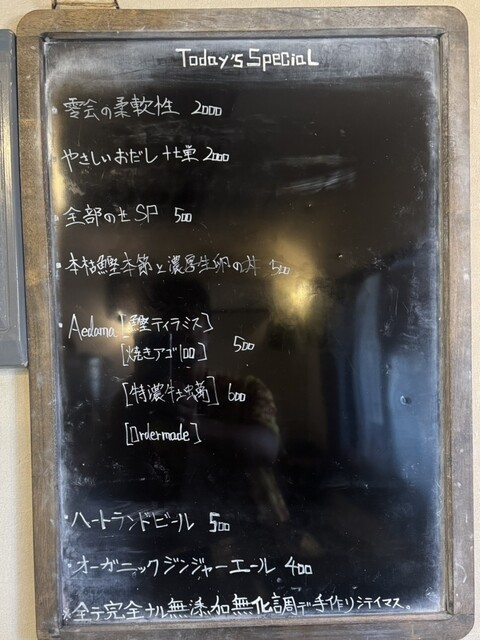 Today's Special
・雲会の柔軟性 2000
・やさしいおだし 2000
・全部のせSP 500
・本枯鰹本節と濃厚生卵の丼 500
・Aedama [鰹ティラミス]
[焼きアゴ] 500
[特濃牡蠣] 600
[Ordermade]
・ハートランドビール 500
・オーガニックジンジャーエール 400
※全テ完全ナル無添加無化調デ手作リシテイマス。